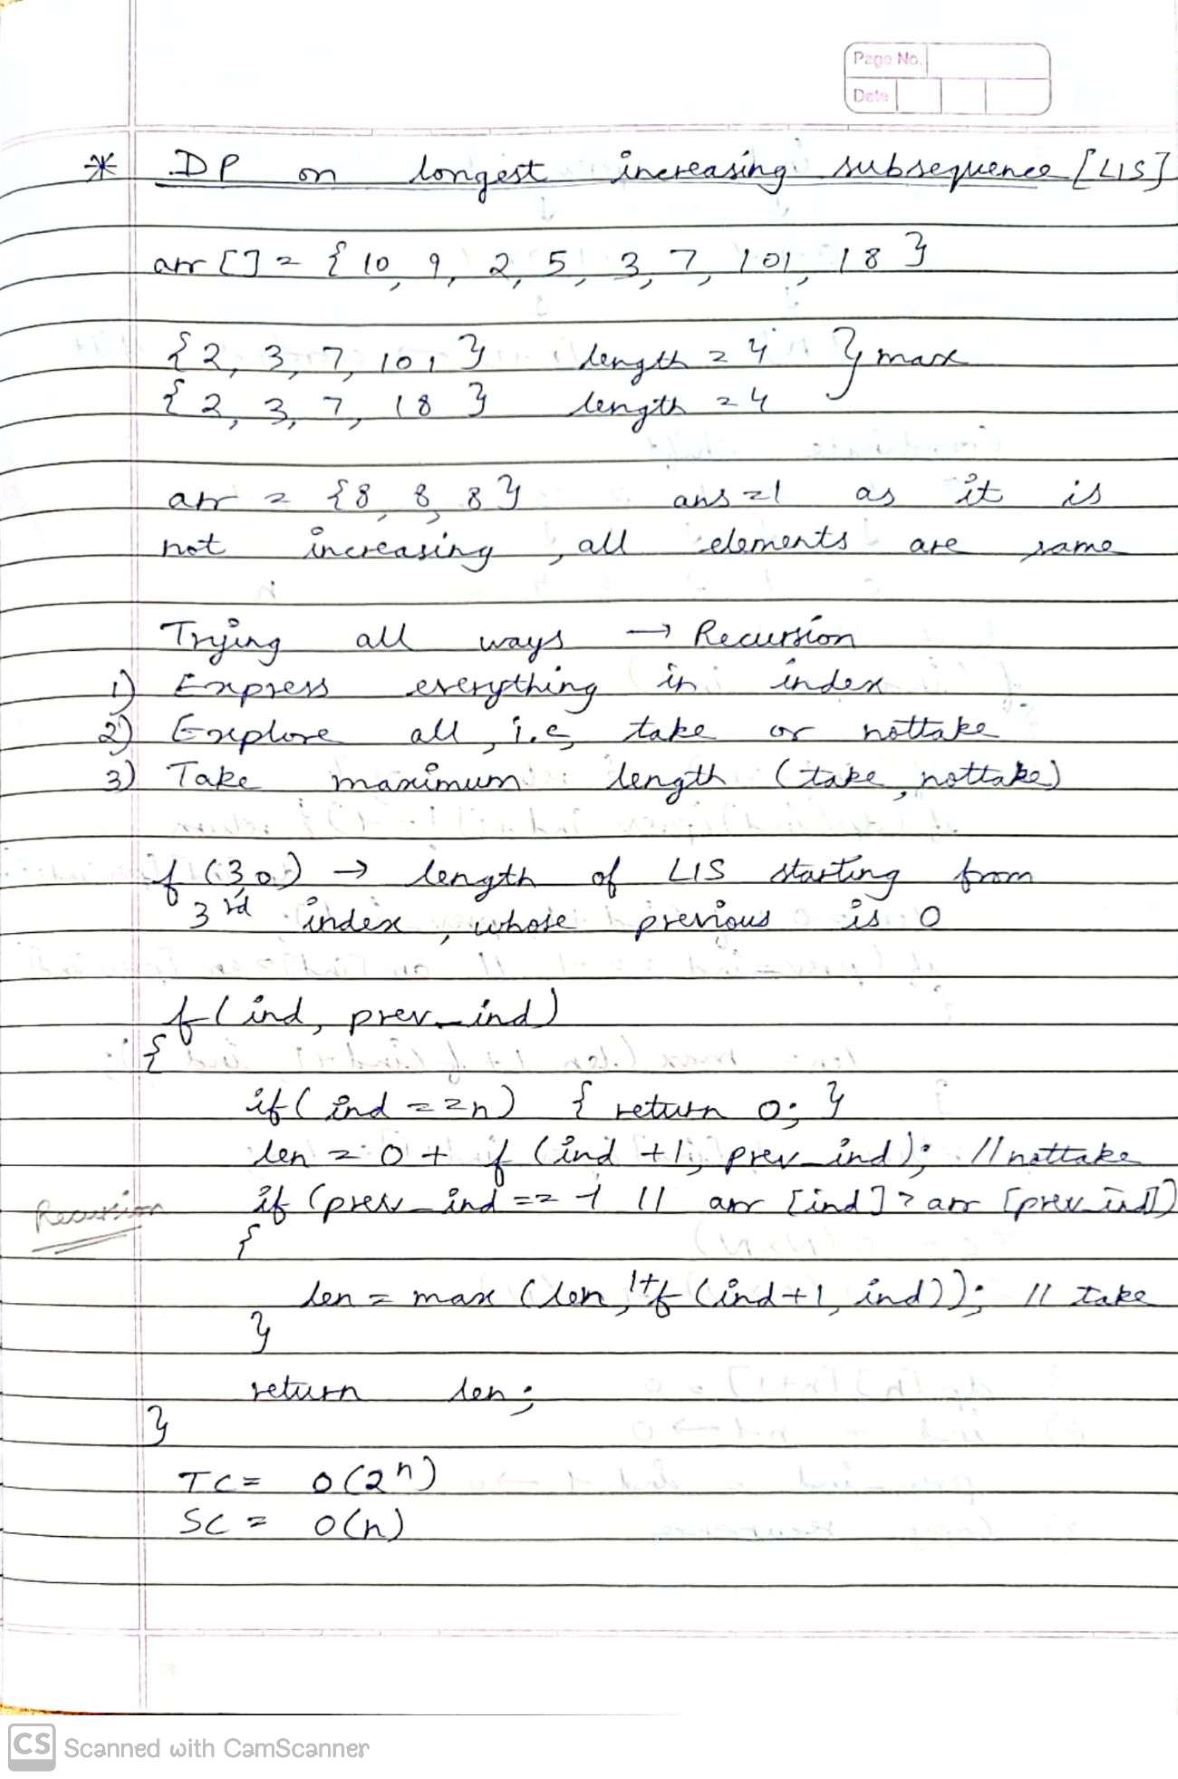 Page No.
Date
* DP on longest increasing subsequence [LIS]
arr[] = {10, 9, 2, 5, 3, 7, 101, 18}
{2, 3, 7, 101} length = 4 } max
{2, 3, 7, 18} length = 4
arr = {8, 8, 8} ans = 1 as it is
not increasing, all elements are same
Trying all ways → Recursion
1) Express everything in index
2) Explore all, i.e, take or nottake
3) Take maximum length (take, nottake)
f(3,0) → length of LIS starting from
3rd index, whose previous is 0
f(ind, prev_ind)
{
if(ind == n) { return 0; }
len = 0 + f(ind+1, prev_ind); // nottake
Recursion
if (prev_ind == -1 || arr[ind] > arr[prev_ind])
{
len = max(len, 1+f(ind+1, ind)); // take
}
return len;
}
TC = O(2^n)
SC = O(n)
CS Scanned with CamScanner